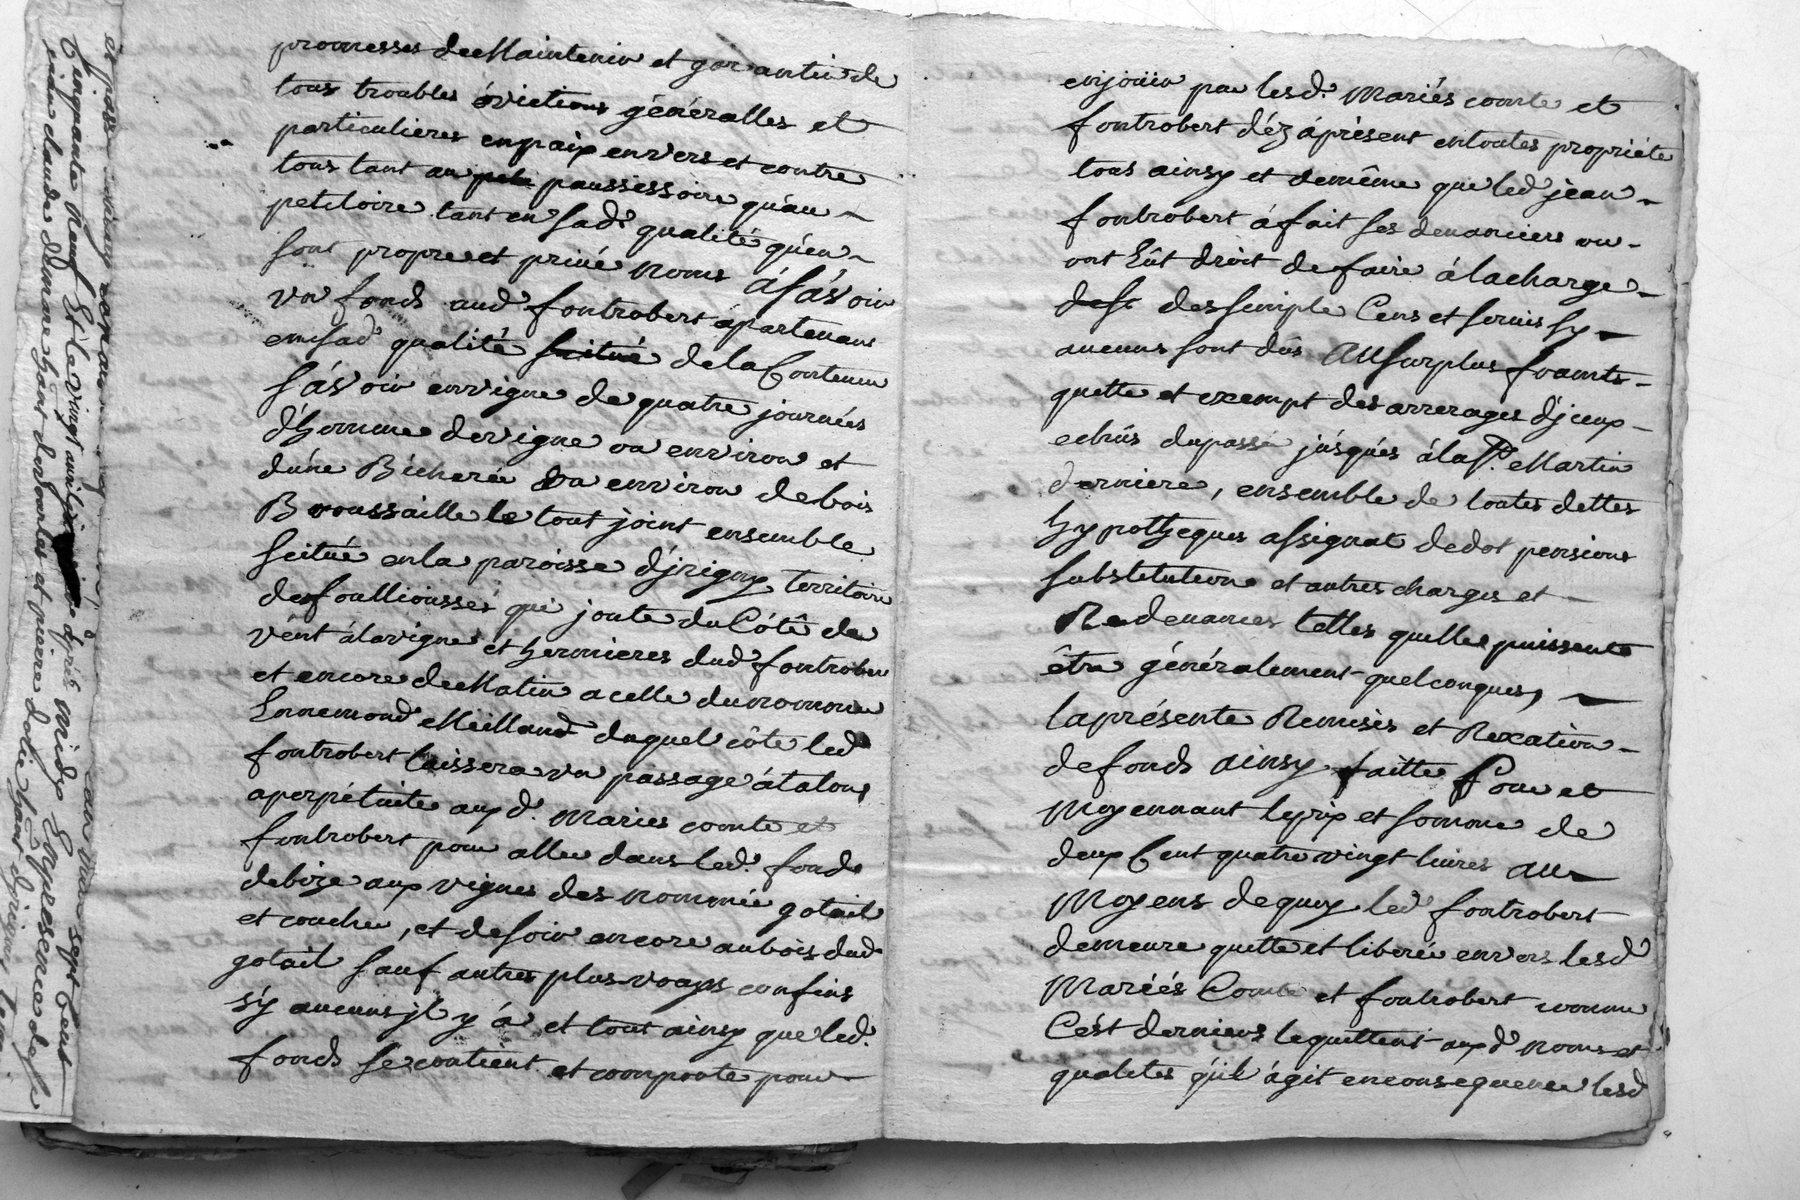 promesses de Maintenir et garantir de
tous troubles évictions généralles et
particulieres en paix envers et contre
tous tant au paussessoire qu'au
petitoire tant en sad. qualité qu'en
sont propre et privé noms áfávoir
un fonds aud. fontrobert apartenant
en sad. qualité scitué de la Contenue
sávoir en vigne de quatre journées
d'homme de vigne ou environ et
dúne Bicherée ou environ de bois
Broussaille le tout joint ensemble
scitué en la paroisse d'jrigny territoire
des foulliousses qui joute du Cóté de
vént á la vigne et hermieres dud. fontrobert
et encore de Matin a celle du nomme
Ennemond Meilland duquel côte led.
fontrobert laissera un passage á talons
a perpétuité aux d. Mariés comte et
fontrobert pour aller dans led. fonds
de bize aux vignes des nommés gotail
et couchu, et de soir encore au bois dud.
gotail sauf autres plus vrays confins
s'y aucuns jl y á et tout ainsy que led.
fonds se contient et comporte pour
enjoüir par lesd. Mariés comte et
fontrobert déz áprésent en toutes propriéte
tous ainsy et de même que led. jean
fontrobert á fait ses devanciers ou
ont Eût droit de faire á la charge
des simple Cens et servis sy
aucuns sont dûs Au surplus franc
quette et exempt des arrerages d'jceux
echûs du passé júsqués á la St. Martin
derniere, ensemble de toutes dettes
hypotheques assignat de dot pensions
substitution et autres charges et
Redevances telles quelles puissent
être généralement quelconques,
la présente Remises et Rexation
de fonds ainsy faitte Pour et
Moyennant le prix et somme de
deux Cent quatre vingt livres au
Moyens de quoy led. fontrobert
demeure quitte et liberée envers lesd.
Mariés Comte et fontrobert comme
Cést derniers le quittent aux d. noms et
qualités qu'il ágit en consequence lesd.
Cinquante Neuf Et le vingt avril après midy En présence de sr.